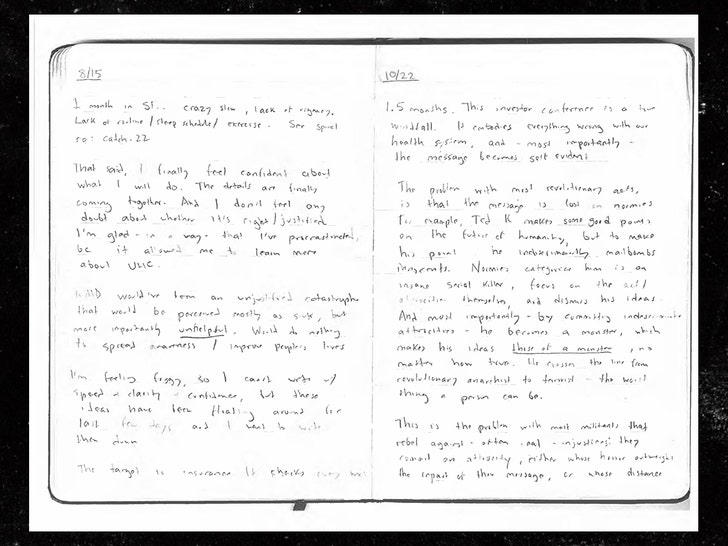 8/15
1 month in SF. crazy slow, lack of urgency.
Lack of routine / sleep schedule / exercise.
so: catch-22
That said, I finally feel confident about
what I will do. The details are finally
coming together. And I don't feel any
doubt about whether it's right/justified.
I'm glad - in a way - that I've procrastinated,
bc it allowed me to learn more
about UHC.
would've been an unjustified catastrophe
that would be perceived mostly as sick, but
more importantly unhelpful. Would do nothing
to spread awareness / improve people's lives
I'm feeling foggy, so I can't write w/
speed + clarity + confidence, but these
ideas have been floating around for
last few days and I want to write
them down
The target is insurance. It checks every box
10/22
1.5 months. This investor conference is a true
windfall. It embodies everything wrong with our
health system, and - most importantly -
the message becomes self evident.
The problem with most revolutionary acts,
is that the message is lost on normies
For example, Ted K makes some good points
on the future of humanity, but to make
his point he indiscriminately mailbombs
innocents. Normies categorize him as an
insane serial killer, focus on the act/
atrocities themselves, and dismiss his ideas.
And most importantly - by committing indiscriminate
atrocities - he becomes a monster, which
makes his ideas those of a monster, no
matter how true. He crosses the line from
revolutionary anarchist to terrorist - the worst
thing a person can be.
This is the problem with most militants that
rebel against - often real - injustices: they
commit an atrocity, either whose horror outweighs
the impact of their message, or whose distance